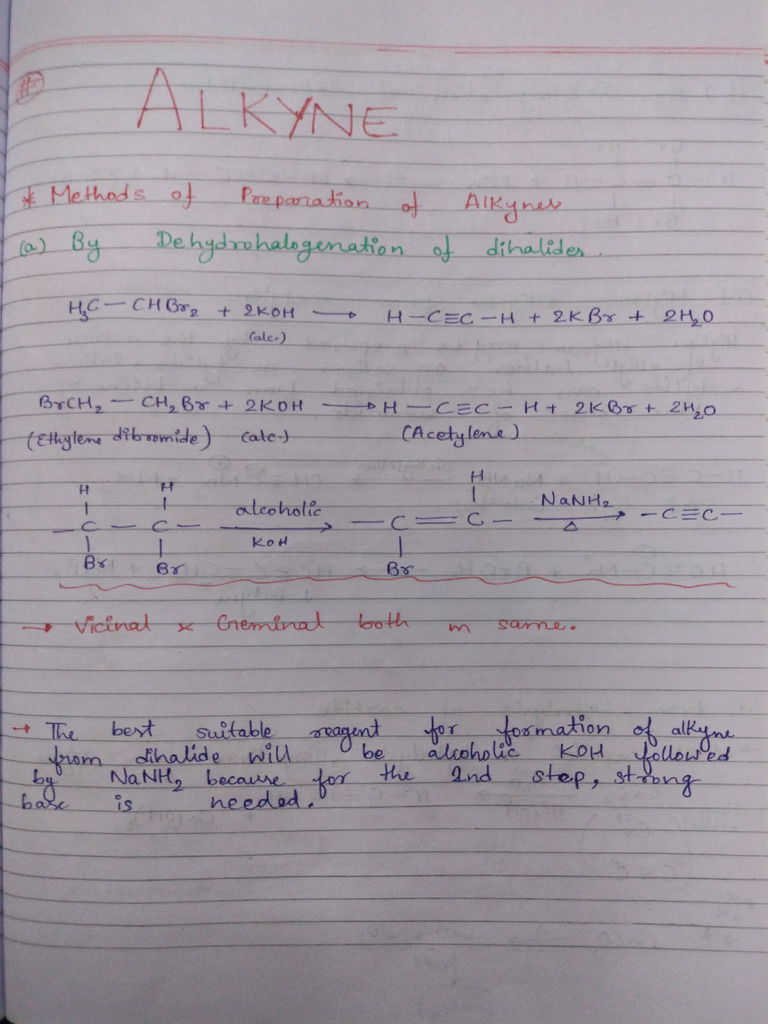 #
ALKYNE
* Methods of Preparation of Alkynes
(a) By Dehydrohalogenation of dihalides.
H₃C — CHBr₂ + 2KOH ⟶ H — C≡C — H + 2KBr + 2H₂O
(alc.)
BrCH₂ — CH₂Br + 2KOH ⟶ H — C≡C — H + 2KBr + 2H₂O
(Ethylene dibromide) (alc.) (Acetylene)
H H H
— C — C — alcoholic ⟶ — C = C — NaNH₂ ⟶ — C≡C —
KOH Δ
Br Br Br
→ Vicinal & Geminal both m same.
→ The best suitable reagent for formation of alkyne
from dihalide will be alcoholic KOH followed
by NaNH₂ because for the 2nd step, strong
base is needed.